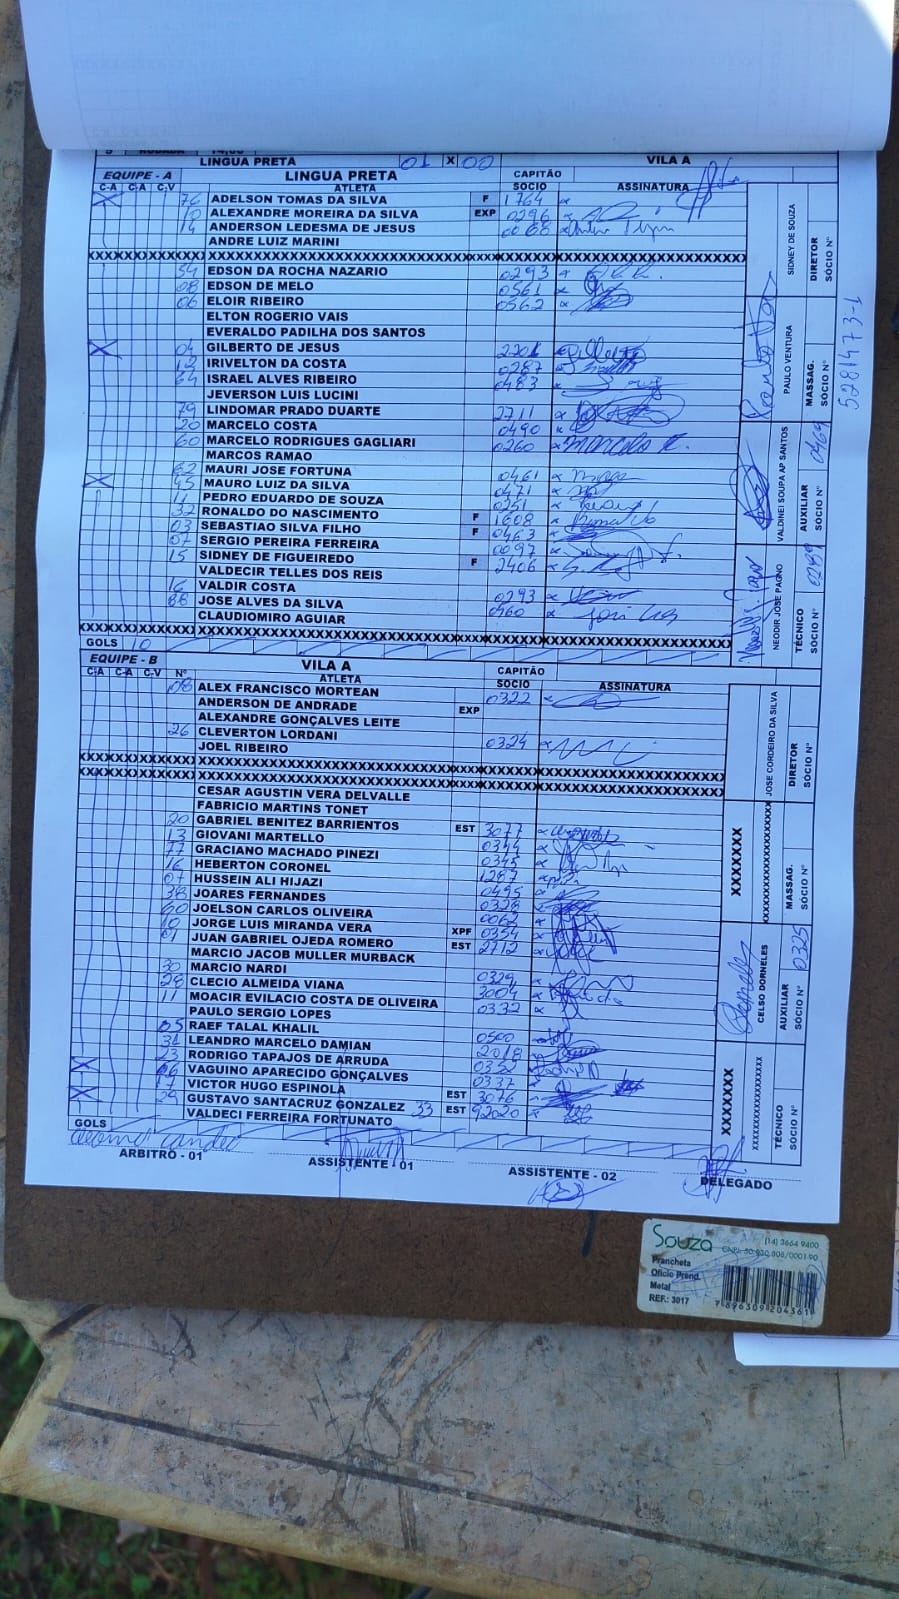 LINGUA PRETA 01 X 00 VILA A
EQUIPE - A LINGUA PRETA CAPITÃO
C-A C-A C-V ATLETA SOCIO ASSINATURA
76 ADELSON TOMAS DA SILVA F 1764
10 ALEXANDRE MOREIRA DA SILVA EXP 0296
14 ANDERSON LEDESMA DE JESUS 0068
ANDRE LUIZ MARINI
54 EDSON DA ROCHA NAZARIO 0293
08 EDSON DE MELO 0561
06 ELOIR RIBEIRO 0562
ELTON ROGERIO VAIS
EVERALDO PADILHA DOS SANTOS
04 GILBERTO DE JESUS 2201
12 IRIVELTON DA COSTA 0287
64 ISRAEL ALVES RIBEIRO 0483
JEVERSON LUIS LUCINI
79 LINDOMAR PRADO DUARTE 2711
20 MARCELO COSTA 0490
60 MARCELO RODRIGUES GAGLIARI 0260
MARCOS RAMAO
62 MAURI JOSE FORTUNA 0461
45 MAURO LUIZ DA SILVA 0471
11 PEDRO EDUARDO DE SOUZA 0251
32 RONALDO DO NASCIMENTO F 1608
03 SEBASTIAO SILVA FILHO F 0463
07 SERGIO PEREIRA FERREIRA 0097
15 SIDNEY DE FIGUEIREDO F 2406
VALDECIR TELLES DOS REIS
16 VALDIR COSTA 0293
88 JOSE ALVES DA SILVA 0460
CLAUDIOMIRO AGUIAR
GOLS 10
SIDNEY DE SOUZA
DIRETOR
SÓCIO N°
PAULO VENTURA
MASSAG.
SÓCIO N°
5281473-1
VALDINEI SOUPA AP SANTOS
AUXILIAR
SÓCIO N° 0469
NEODIR JOSE PAGNO
TÉCNICO
SÓCIO N° 0289
EQUIPE - B VILA A CAPITÃO
C-A C-A C-V N° ATLETA SOCIO ASSINATURA
08 ALEX FRANCISCO MORTEAN 0322
ANDERSON DE ANDRADE EXP
ALEXANDRE GONÇALVES LEITE
26 CLEVERTON LORDANI 0324
JOEL RIBEIRO
CESAR AGUSTIN VERA DELVALLE
FABRICIO MARTINS TONET
20 GABRIEL BENITEZ BARRIENTOS EST 3077
13 GIOVANI MARTELLO 0344
77 GRACIANO MACHADO PINEZI 0345
16 HEBERTON CORONEL 1287
07 HUSSEIN ALI HIJAZI 0495
38 JOARES FERNANDES 0328
60 JOELSON CARLOS OLIVEIRA 0062
10 JORGE LUIS MIRANDA VERA XPF 0354
01 JUAN GABRIEL OJEDA ROMERO EST 2712
MARCIO JACOB MULLER MURBACK
30 MARCIO NARDI 0329
28 CLECIO ALMEIDA VIANA 3004
11 MOACIR EVILACIO COSTA DE OLIVEIRA 0332
PAULO SERGIO LOPES
05 RAEF TALAL KHALIL 0500
31 LEANDRO MARCELO DAMIAN 2018
23 RODRIGO TAPAJOS DE ARRUDA 0352
06 VAGUINO APARECIDO GONÇALVES 0337
17 VICTOR HUGO ESPINOLA EST 3076
29 GUSTAVO SANTACRUZ GONZALEZ 33 EST 92020
VALDECI FERREIRA FORTUNATO
GOLS
JOSE CORDEIRO DA SILVA
DIRETOR
SÓCIO N°
XXXXXXX
MASSAG.
SÓCIO N°
CELSO DORNELES
AUXILIAR
SÓCIO N° 0325
XXXXXXX
TÉCNICO
SÓCIO N°
ARBITRO - 01 ASSISTENTE - 01 ASSISTENTE - 02 DELEGADO
Souza
(14) 3664 9400
Prancheta
Oficio Prend.
Metal
REF.: 3017
7 896309 204361